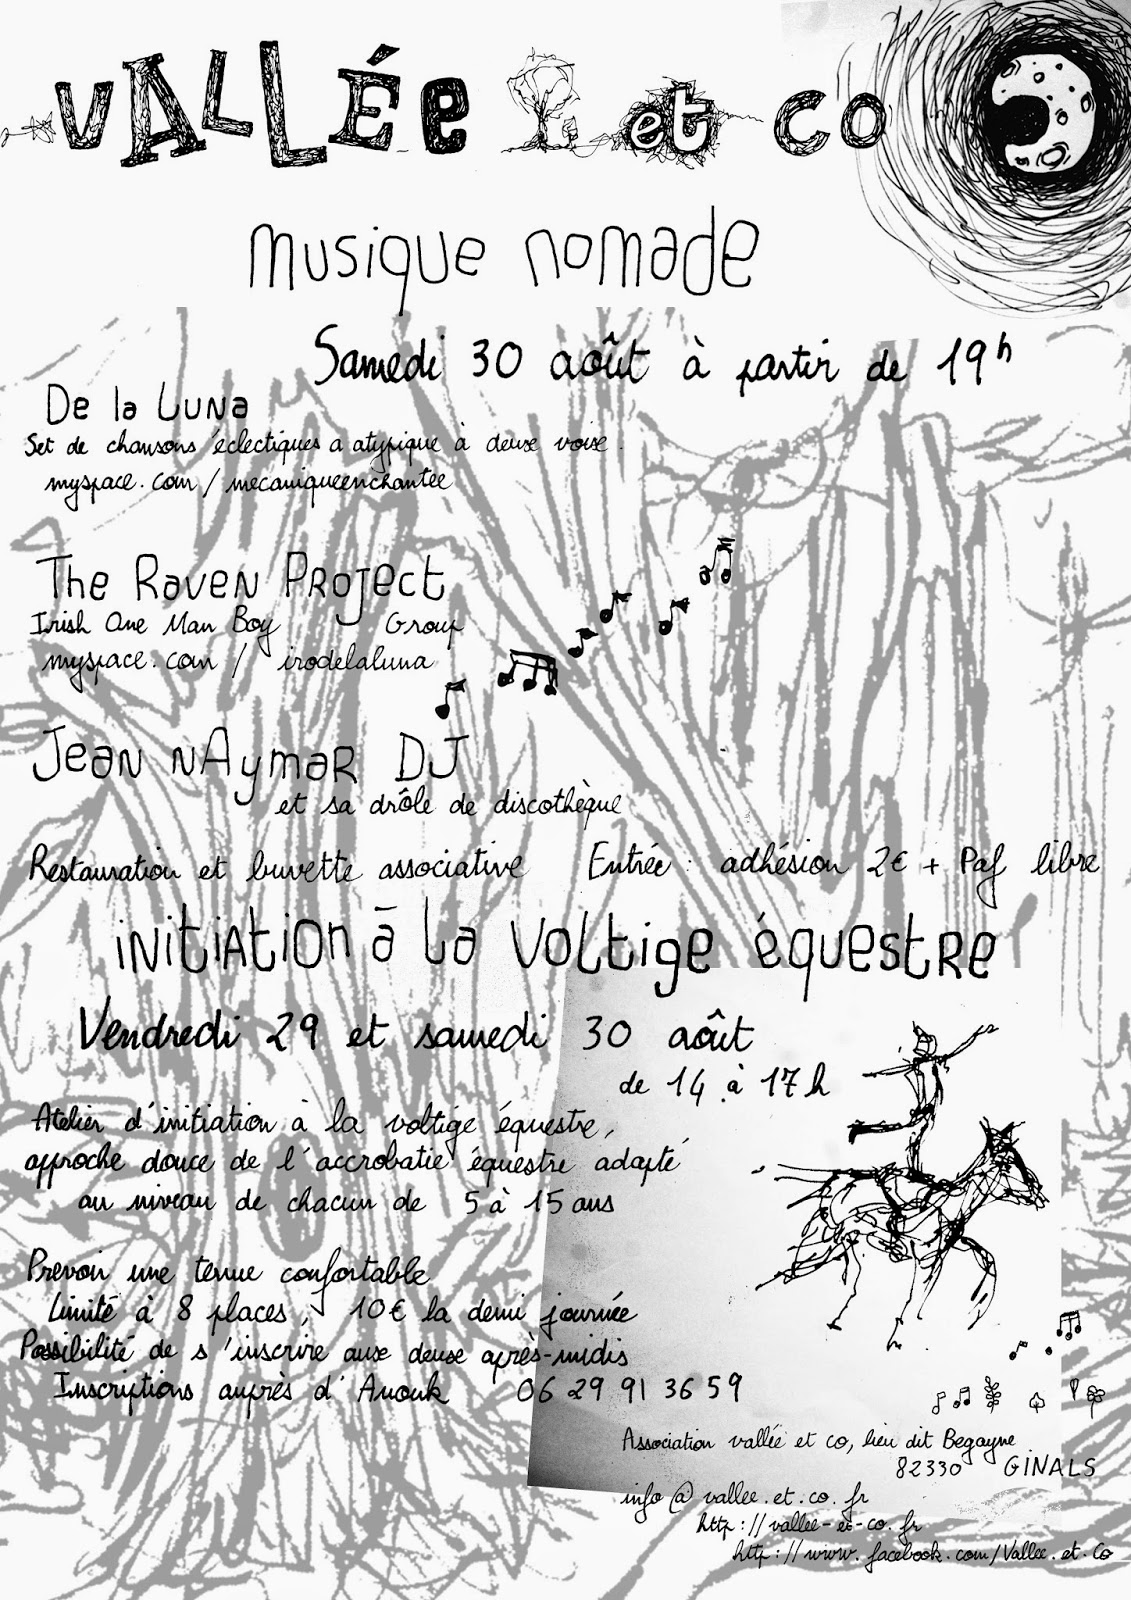 VALLÉE et co
musique nomade
Samedi 30 août à partir de 19h
De la Luna
Set de chansons éclectiques a atypique à deux voise.
myspace.com/mecaniqueenchantee
The Raven Project
Irish One Man Boy Group
myspace.com/ irodelaluna
Jean nAymar DJ
et sa drôle de discothèque
Restauration et buvette associative Entrée : adhésion 2€ + Paf libre
initiation à la voltige équestre
Vendredi 29 et samedi 30 août
de 14 à 17h
Atelier d'initiation à la voltige équestre,
approche douce de l'accrobatie équestre adapté
au niveau de chacun de 5 à 15 ans
Prevoir une tenue confortable
Limité à 8 places, 10€ la demi journée
Possibilité de s'inscrire aux deux après-midis
Inscriptions auprès d'Anouk 06 29 91 36 59
Association vallée et co, lieu dit Begayne
82330 GINALS
info@vallee.et.co.fr
http://vallee-et-co.fr
http://www.facebook.com/Vallee.et.Co